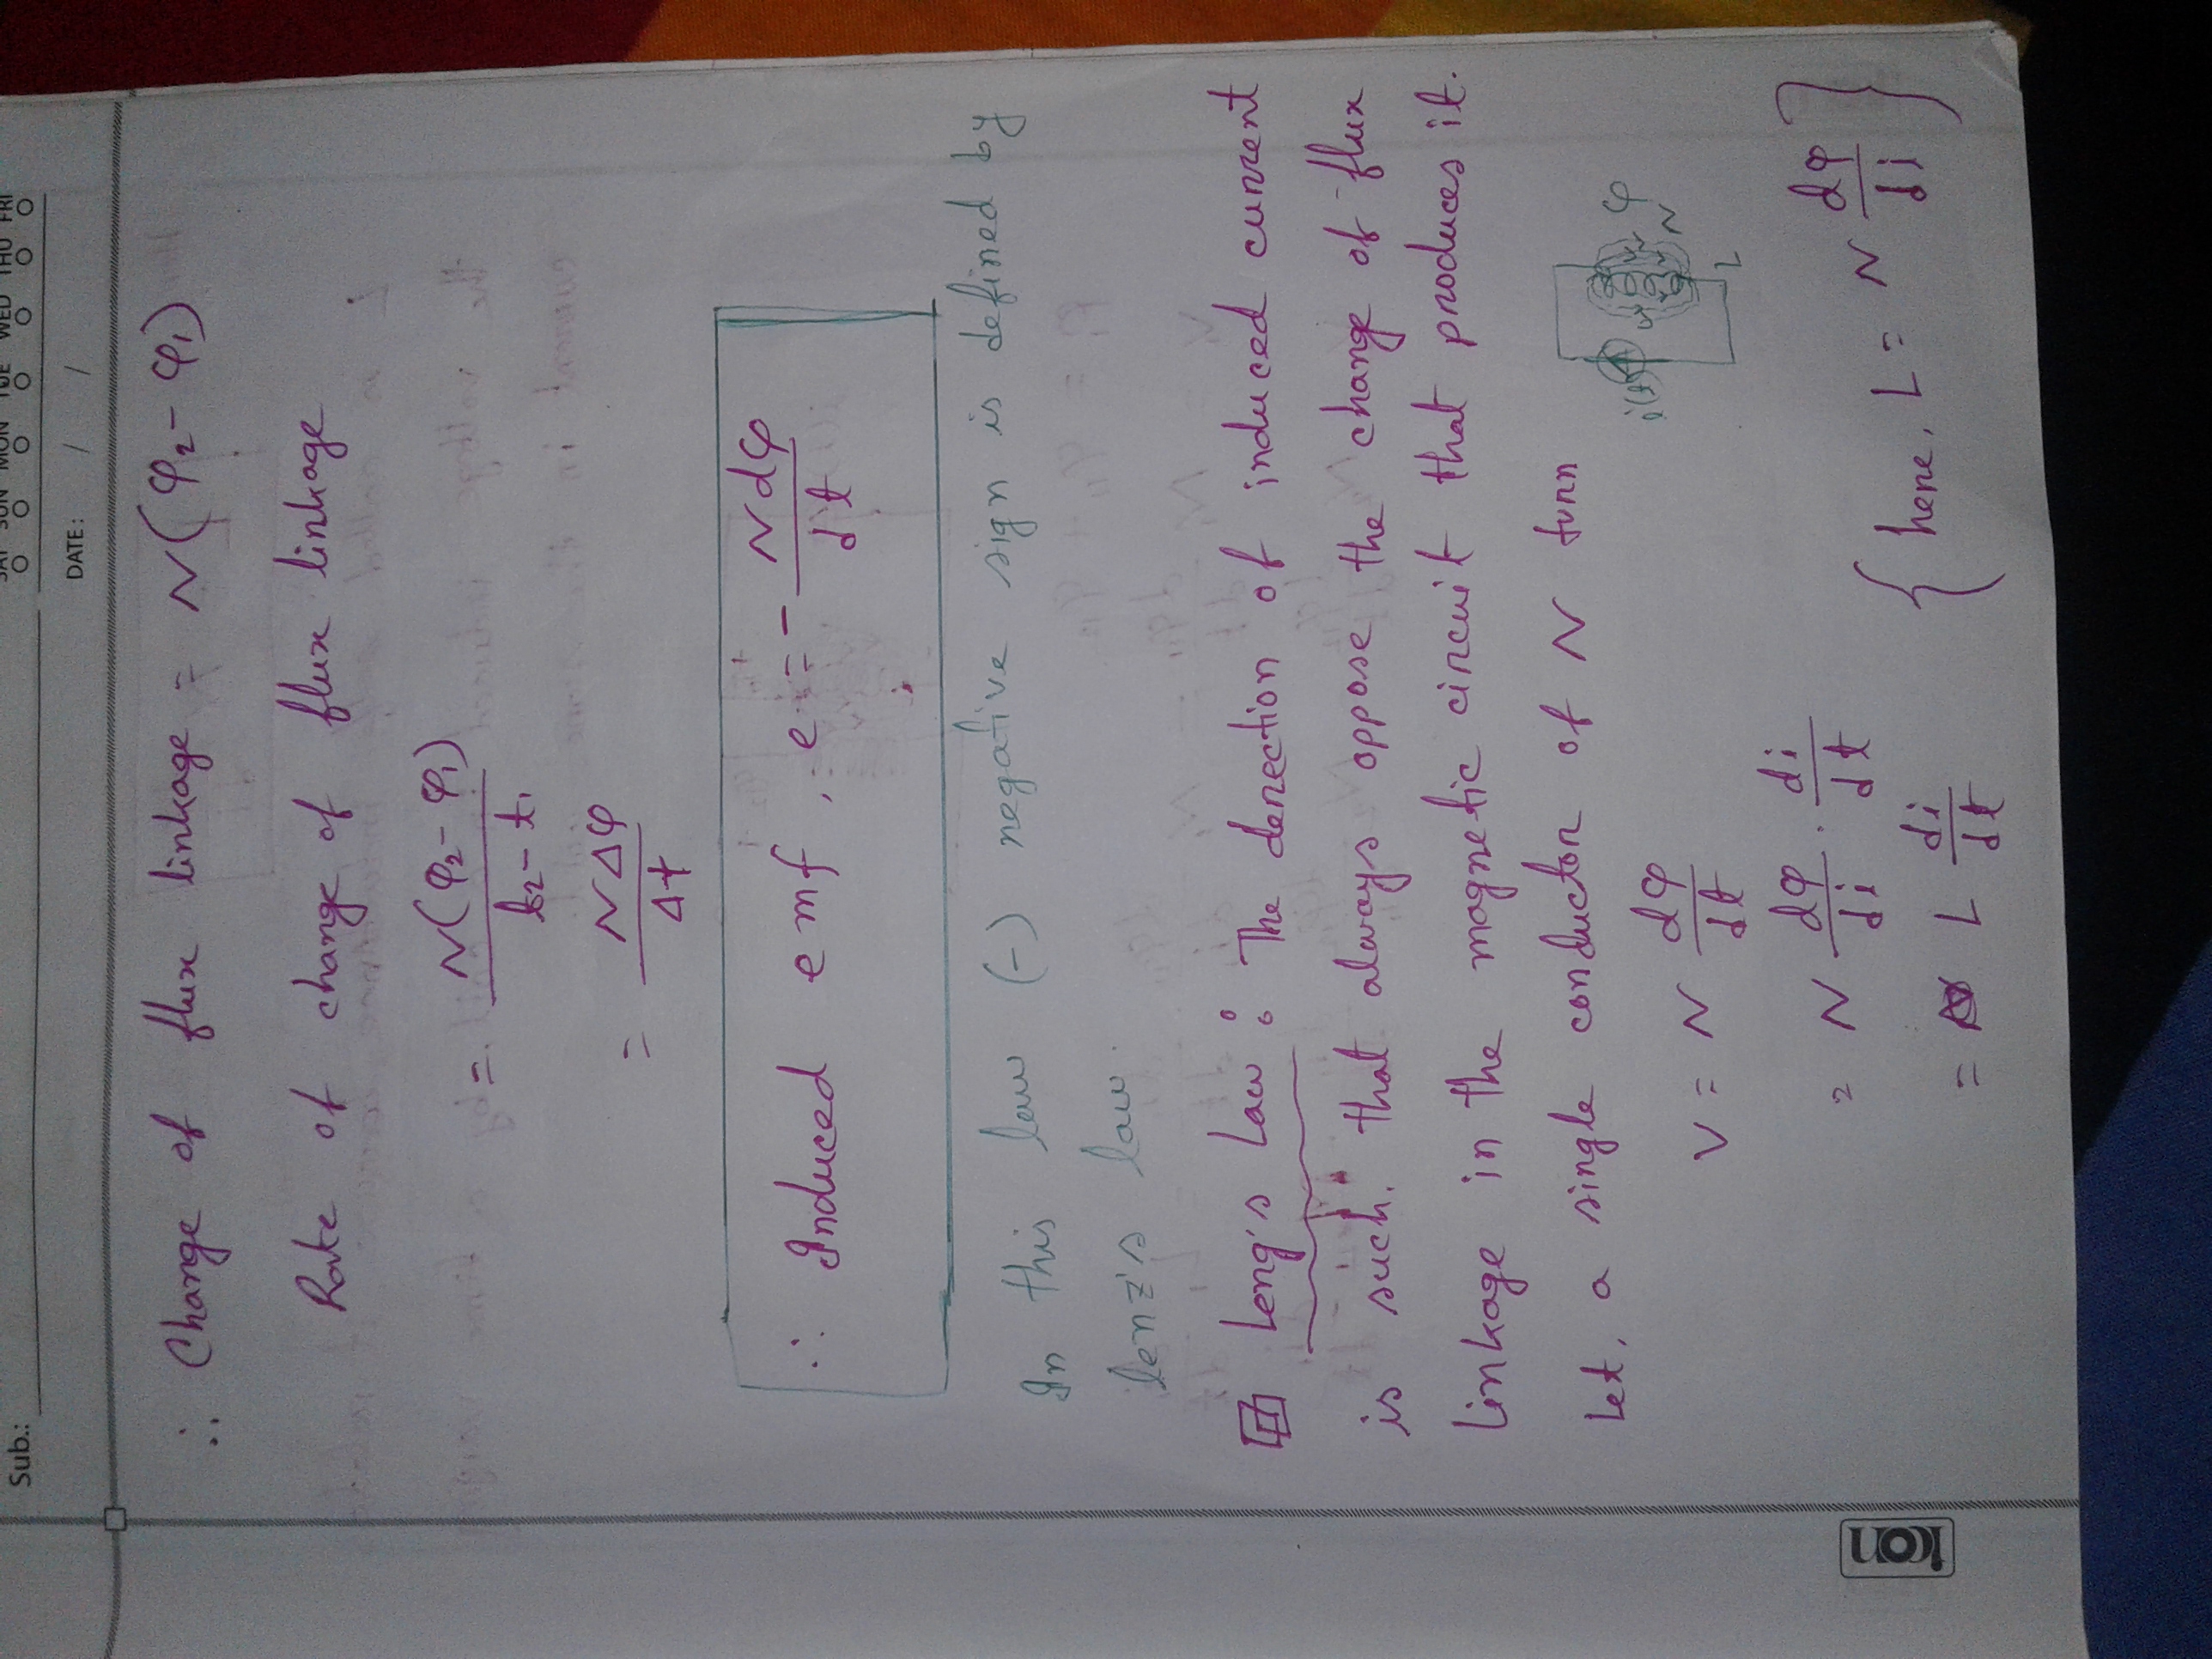 Sub.:
SAT SUN MON TUE WED THU FRI
DATE: / /
∴ Change of flux linkage = N(φ₂ - φ₁)
Rate of change of flux linkage
= N(φ₂ - φ₁) / t₂ - t₁
= NΔφ / Δt
∴ Induced emf, e = - Ndφ / dt
In this law (-) negative sign is defined by
lenz's law.
Leng's Law : The derection of induced current
is such, that always oppose the change of flux
linkage in the magnetic circuit that produces it.
Let, a single conductor of N turn
i(t) φ N L
V = N dφ/dt
= N dφ/di . di/dt
= L di/dt {here, L = N dφ/di}
icon